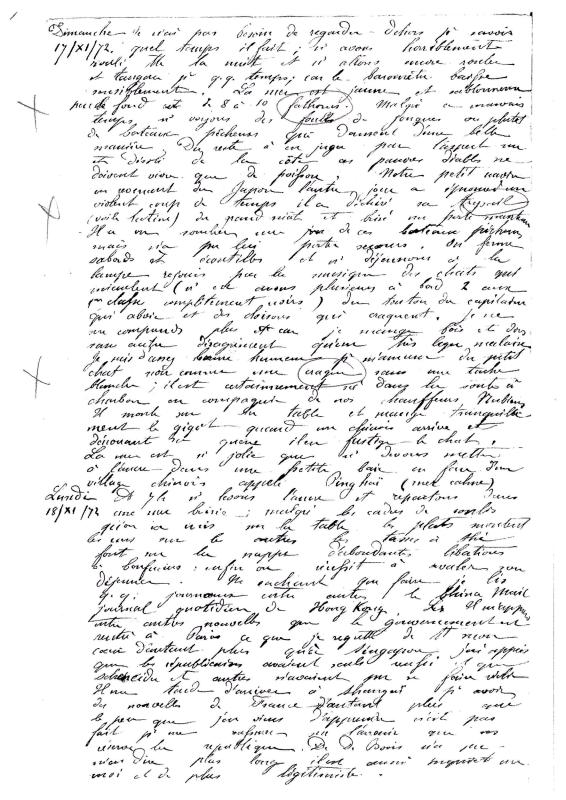 Dimanche je n'ai pas besoin de regarder dehors pr savoir
17/XI/72. quel temps il fait; ns avons horriblement
roulé tte la nuit et ns allons encore rouler
et tanguer pr q.q. temps, car le baromètre baisse
sensiblement. La mer est jaune et
peu de fond est de 8 à 10 fathoms. Malgré ce mauvais
temps, ns voyons des foules de jonques ou plutôt
de bateaux pêcheurs qui dansent d'une belle
manière. Du reste à en juger par l'aspect nu
et désolé de la côte ces pauvres diables ne
doivent vivre que de poisson. Notre petit navire
en revenant du Japon l'autre jour a éprouvé un
violent coup de temps il a déchiré sa trysail
(voile latine) du grand mât et brisé un porte manteau
Il a vu sombrer une de ces bateaux pêcheurs
mais n'a pu leur porter secours. On ferme
sabords et écoutilles et ns déjeunons à la
lampe réjouis par la musique des chats qui
miaulent (ns en avons plusieurs à bord 2 aux
1re classe complètement noirs) du du capitaine
qui aboie et des cloisons qui craquent. Je ne
me comprends plus car je mange bois et dors
sans autre désagrément qu'un très léger malaise
Je suis d'assez bonne humeur pr m'amuser du petit
chat noir comme une sans une tache
blanche; il est certainement né dans la soute à
charbon en compagnie de nos chauffeurs Nubiens
Il monte sur la table et mange tranquille-
ment le gigot quand un chinois arrive et
dénouant sa queue il en fustige le chat.
La mer est si jolie que ns devons mettre
à l'ancre dans une petite baie en face d'un
village chinois appelé Pinghaï (mer calme)
Lundi À 7 h ns levons l'ancre et repartons dans
18/XI/72 avec une brise; malgré les cadres de
qu'on a mis sur la table les plats montent
les uns sur les autres les tasses à thé
font sur la nappe d'abondantes libations
à enfin on réussit à avaler son
déjeuner. Ne sachant que faire je lis
q.q. journaux entre autres le China Mail
journal quotidien de Hong Kong. Il m'apprend
entre autres nouvelles que le gouvernement est
resté à Paris ce que je regrette de tt mon
cœur d'autant plus qu'à Singapour j'avais appris
que les républicains avaient seuls
et autres n'avaient pu se faire
Il me tarde d'arriver à Shangaï pr avoir
des nouvelles de France d'autant plus que
le peu que j'en viens d'apprendre n'est pas
fait pr me rassurer sur l'avenir que ns
réserve la république. De
plus long il est aussi
moi et de plus légitimiste.